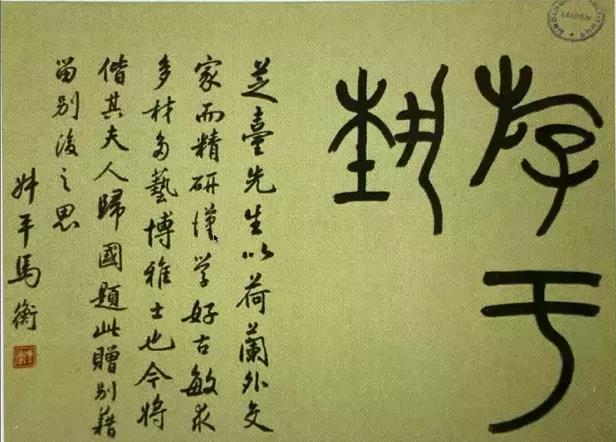 斿于
埶
芝臺先生以荷蘭外交
家而精研漢學好古敏求
多材多藝博雅士也今將
偕其夫人歸國題此贈別藉
留別後之思
叔平馬衡
LEIDEN